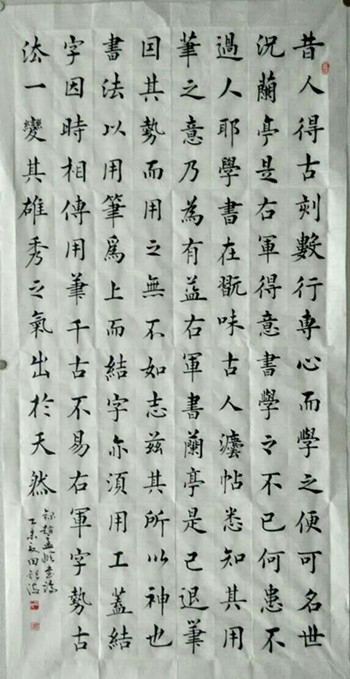 昔人得古刻數行專心而學之便可名世
況蘭亭是右軍得意書學之不已何患不
過人耶學書在翫味古人灋帖悉知其用
筆之意乃為有益右軍書蘭亭是已退筆
囙其勢而用之無不如志茲其所以神也
書法以用筆爲上而結字亦須用工蓋結
字因時相傳用筆千古不易右軍字勢古
法一變其雄秀之氣出於天然